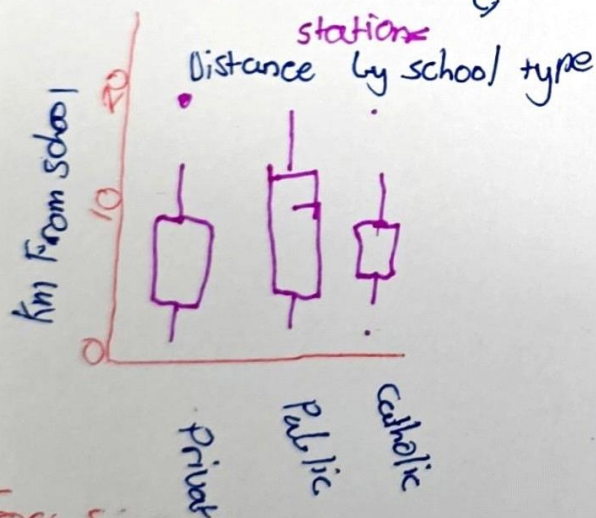 stations
Distance by school type
Km From school
20
10
0
Privat
Public
Catholic